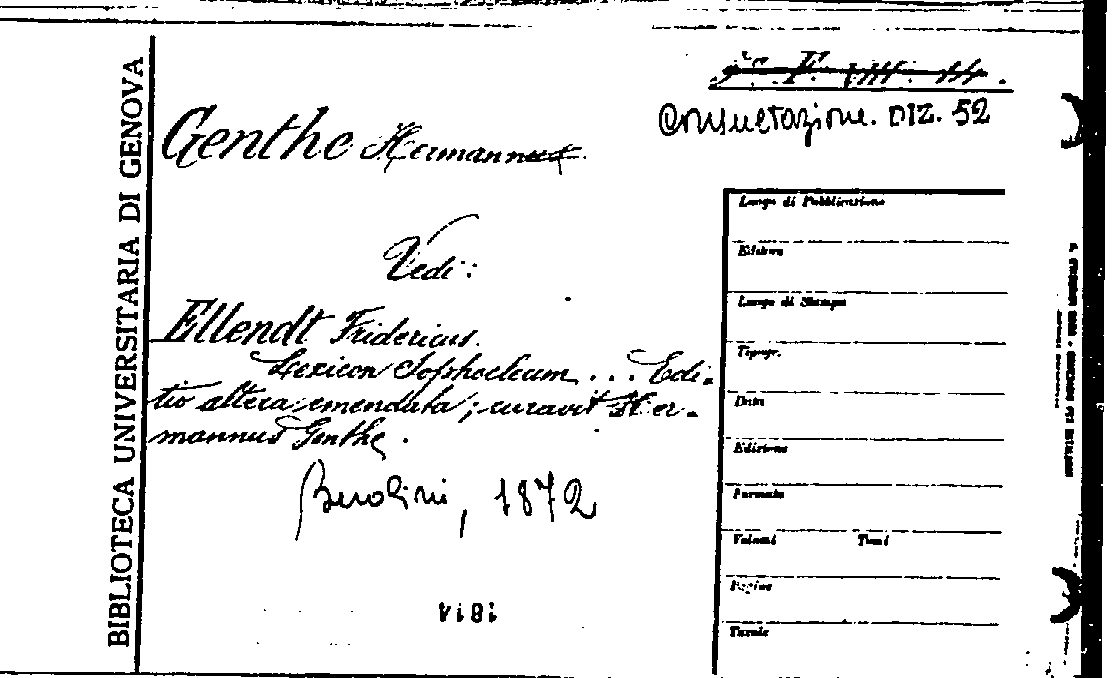 BIBLIOTECA UNIVERSITARIA DI GENOVA
Consultazione. DIZ. 52
Genthe Hermannus
Vedi:
Ellendt Fridericus.
Lexicon Sophocleum ... Edi-
tio altera emendata; curavit Her-
mannus Genthe.
Berolini, 1872
Luogo di Pubblicazione
Editore
Luogo di Stampa
Tipogr.
Data
Edizione
Formato
Volumi Tomi
Pagine
Tavole